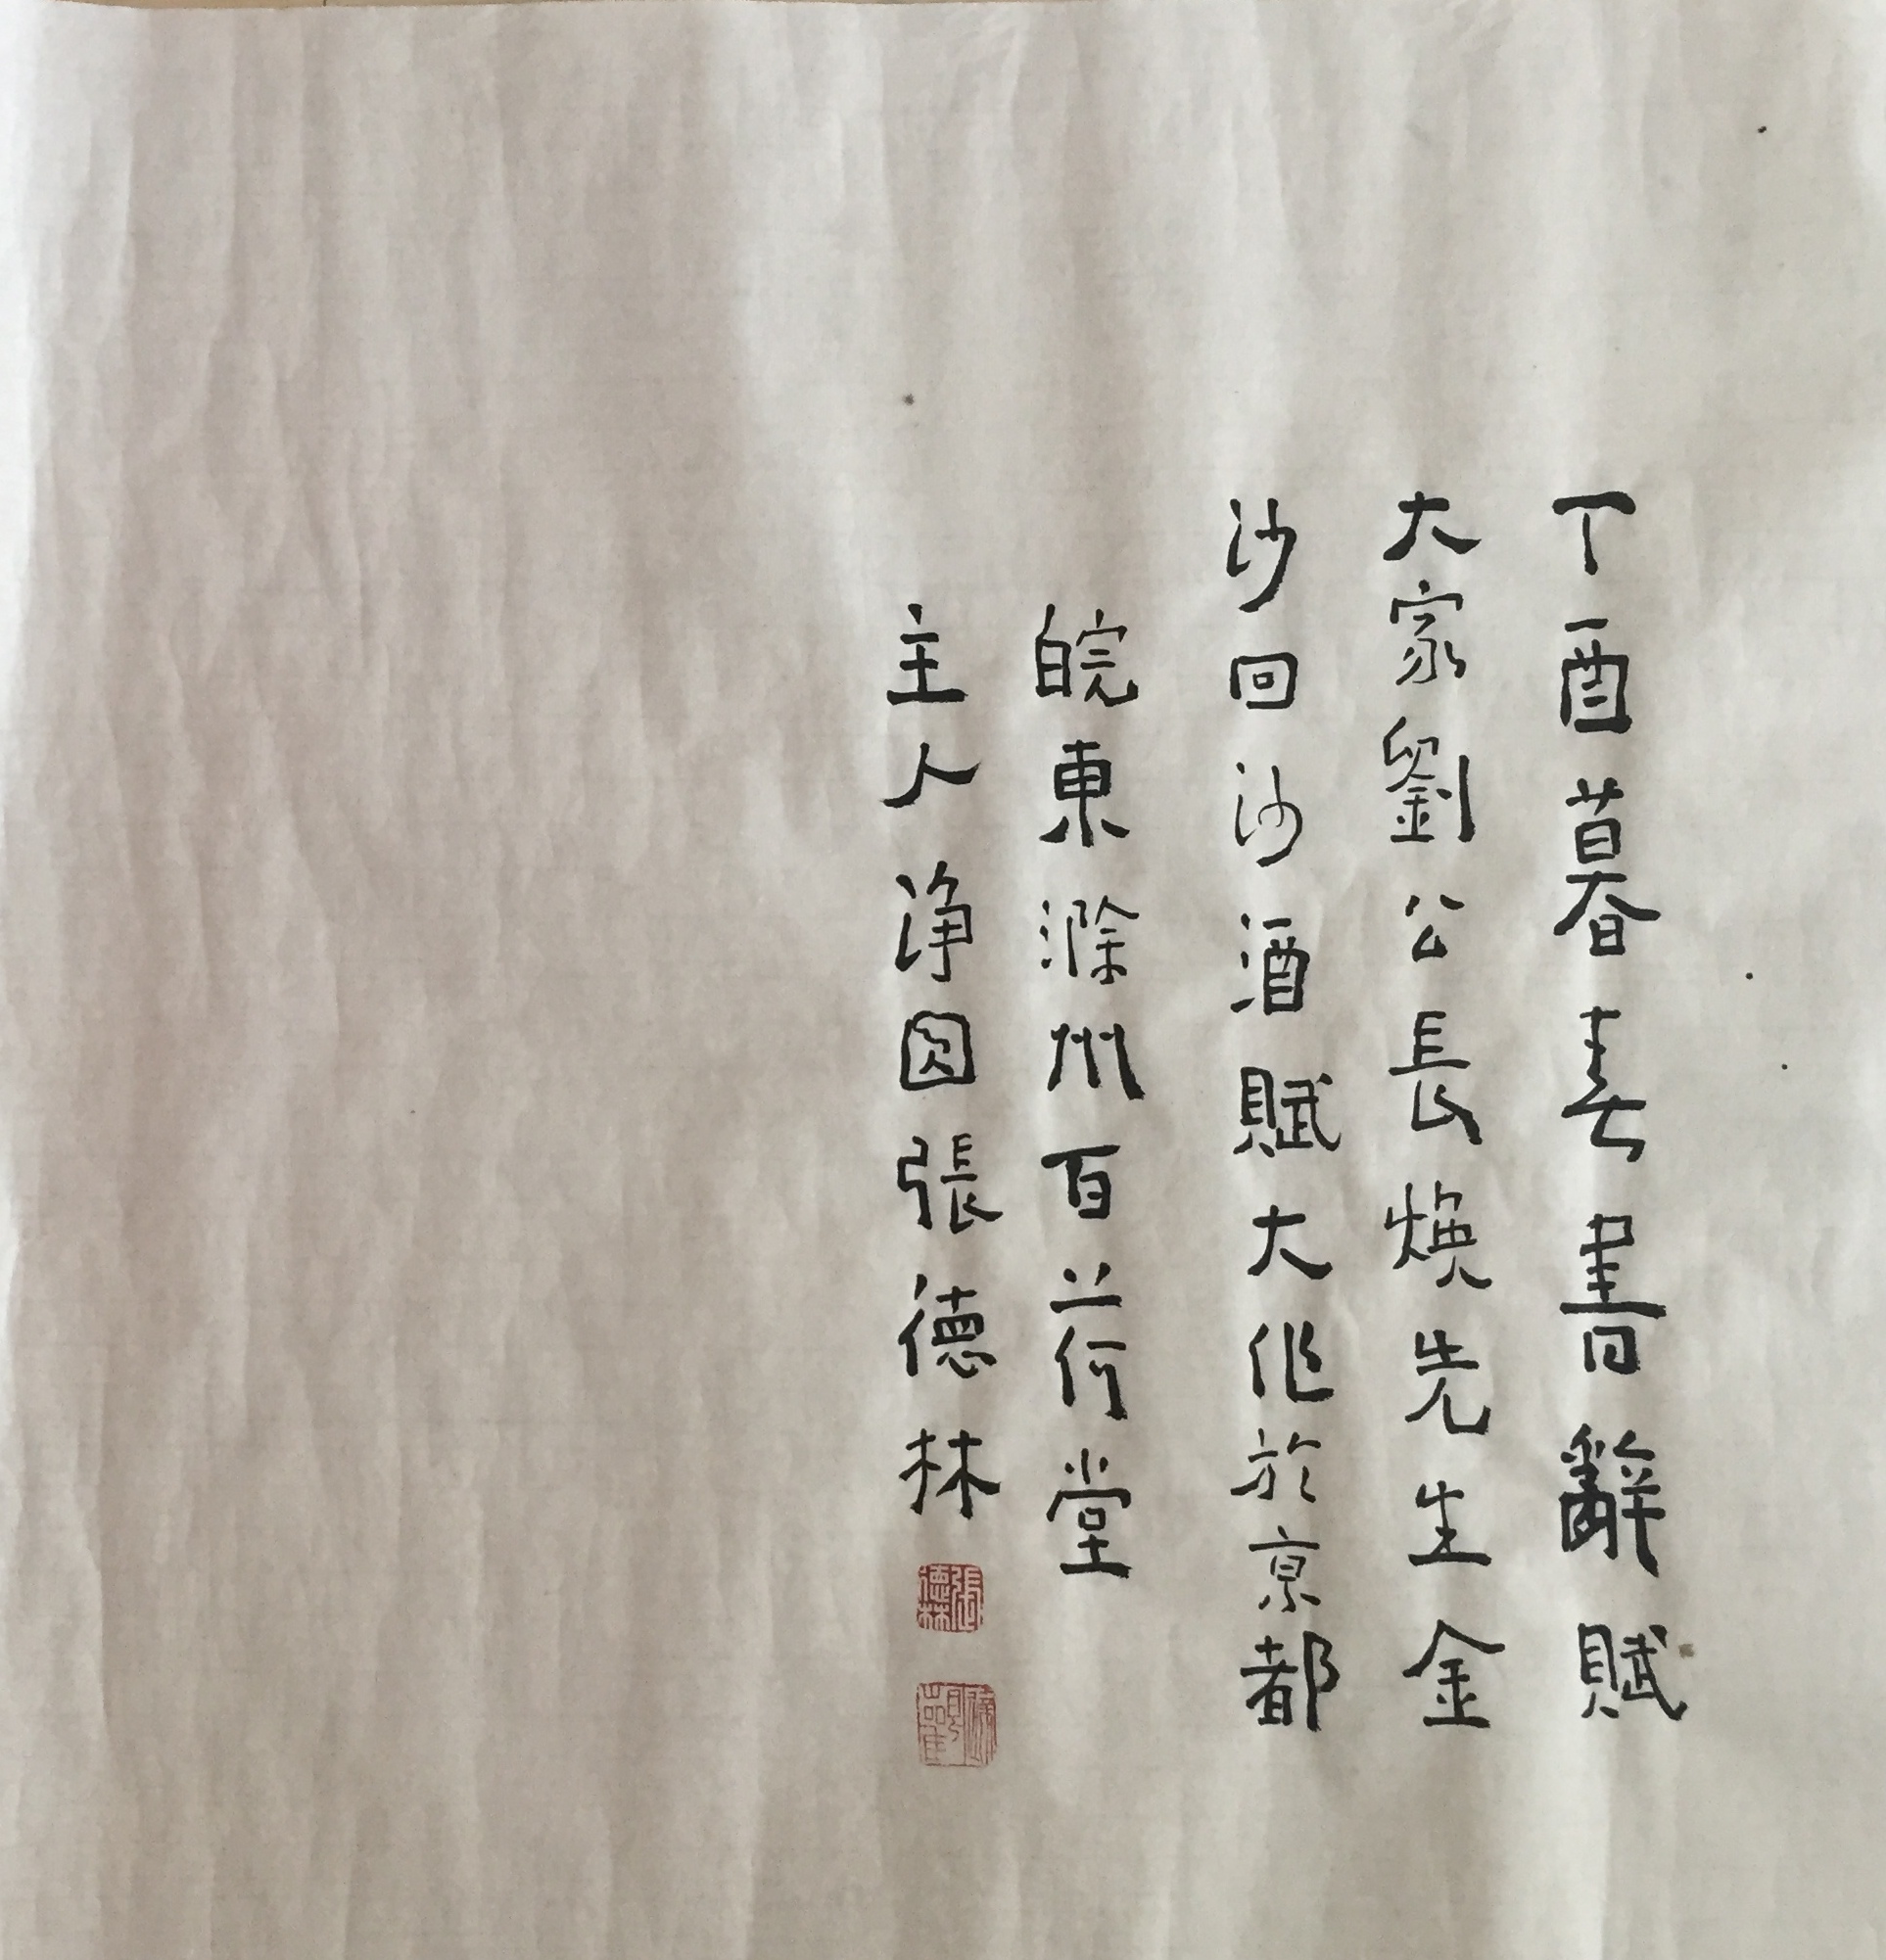 丁酉暮春書辭賦
大家劉公長煥先生金
沙回沙酒賦大作於京都
皖東滁州百荷堂
主人淨張德林
張德林